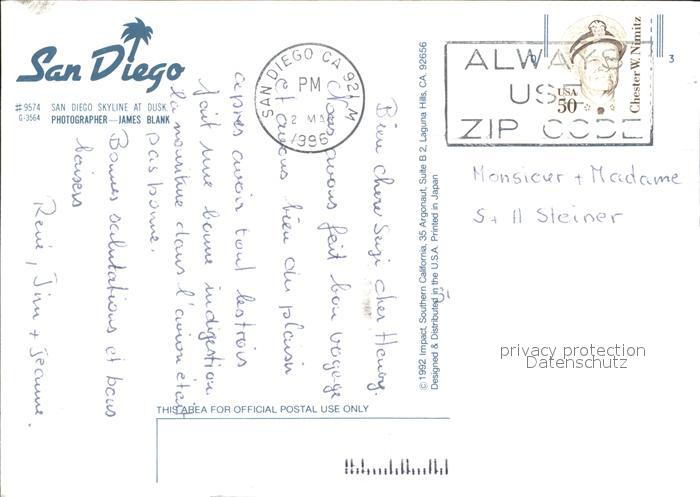 San Diego
#9574 SAN DIEGO SKYLINE AT DUSK
G-3564 PHOTOGRAPHER—JAMES BLANK
SAN DIEGO CA 921
PM
2 MA
1996
ALWAYS
USE
ZIP CODE
USA
50
Chester W. Nimitz
3
Bien chere Suzi cher Henry.
Nous avons fait bon voyage
et avons bien du plaisir
apres avoir tout les trois
fait une bonne indigestion.
la nourriture dans l'avion était
pas bonne.
Bonnes salutations et bons
baisers
René, Jim + Jeanne.
© 1992 Impact, Southern California, 35 Argonaut, Suite B 2, Laguna Hills, CA. 92656
Designed & Distributed in the U.S.A. Printed in Japan
Monsieur + Madame
S + H Steiner
privacy protection
Datenschutz
THIS AREA FOR OFFICIAL POSTAL USE ONLY